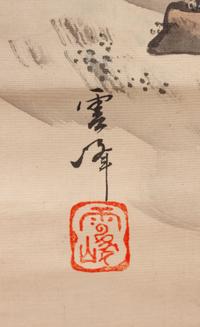 雲
峰
雲峰